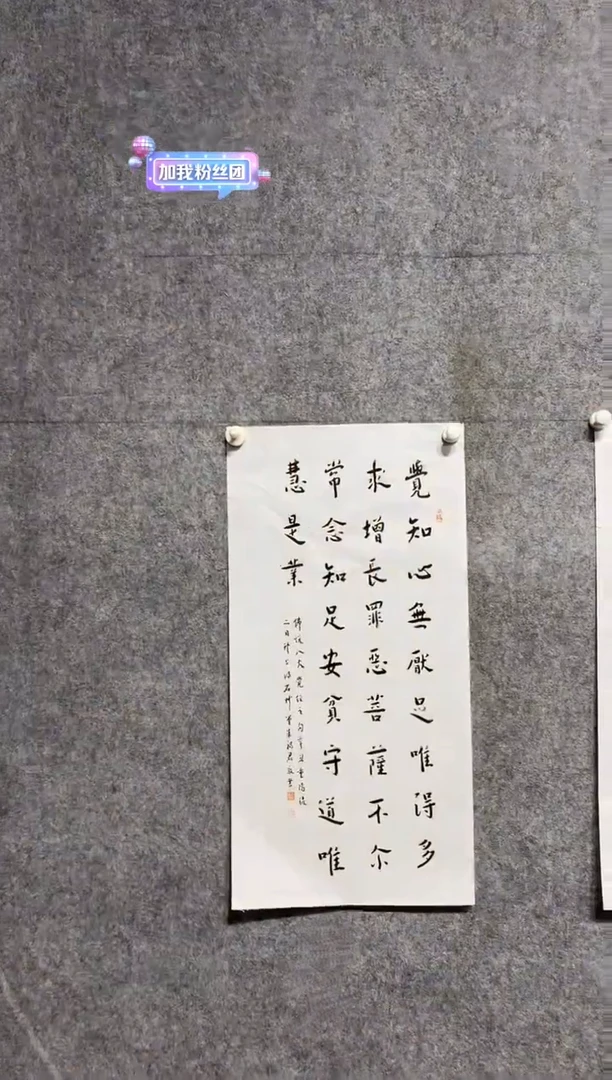 加我粉丝团
覺知心無厭足唯得多
求增長罪惡菩薩不尔
常念知足安貧守道唯
慧是業